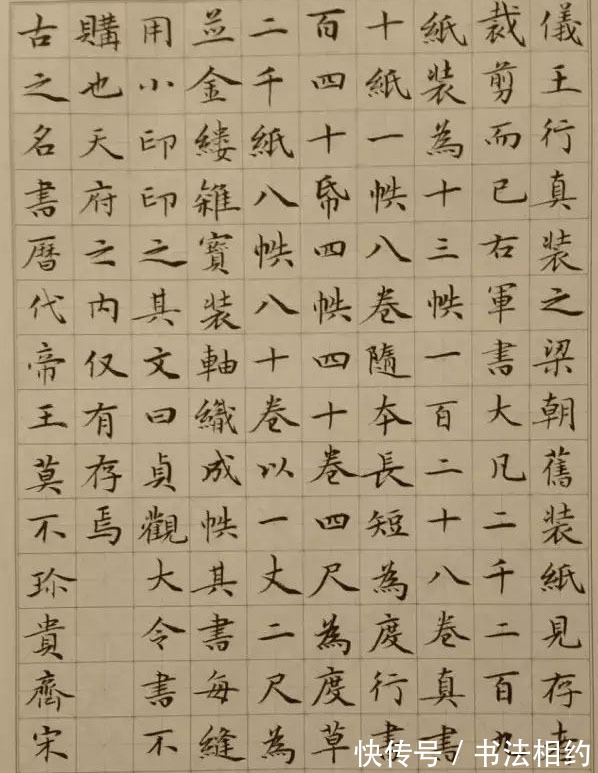 儀王行真裝之梁朝舊裝紙見存
裁剪而已右軍書大凡二千二百
紙裝為十三帙一百二十八卷真書
十紙一帙八卷隨本長短為度行書
百四十帋四帙四十卷四尺為度草
二千紙八帙八十卷以一丈二尺為
並金縷雜寶裝軸織成帙其書每縫
用小印印之其文曰貞觀大令書不
購也天府之內仅有存焉
古之名書曆代帝王莫不珎貴齊宋
快传号 / 书法相约